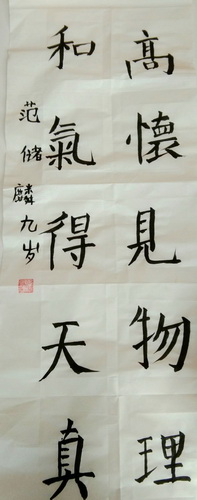 高懷見物理
和氣得天真
范储麟九岁